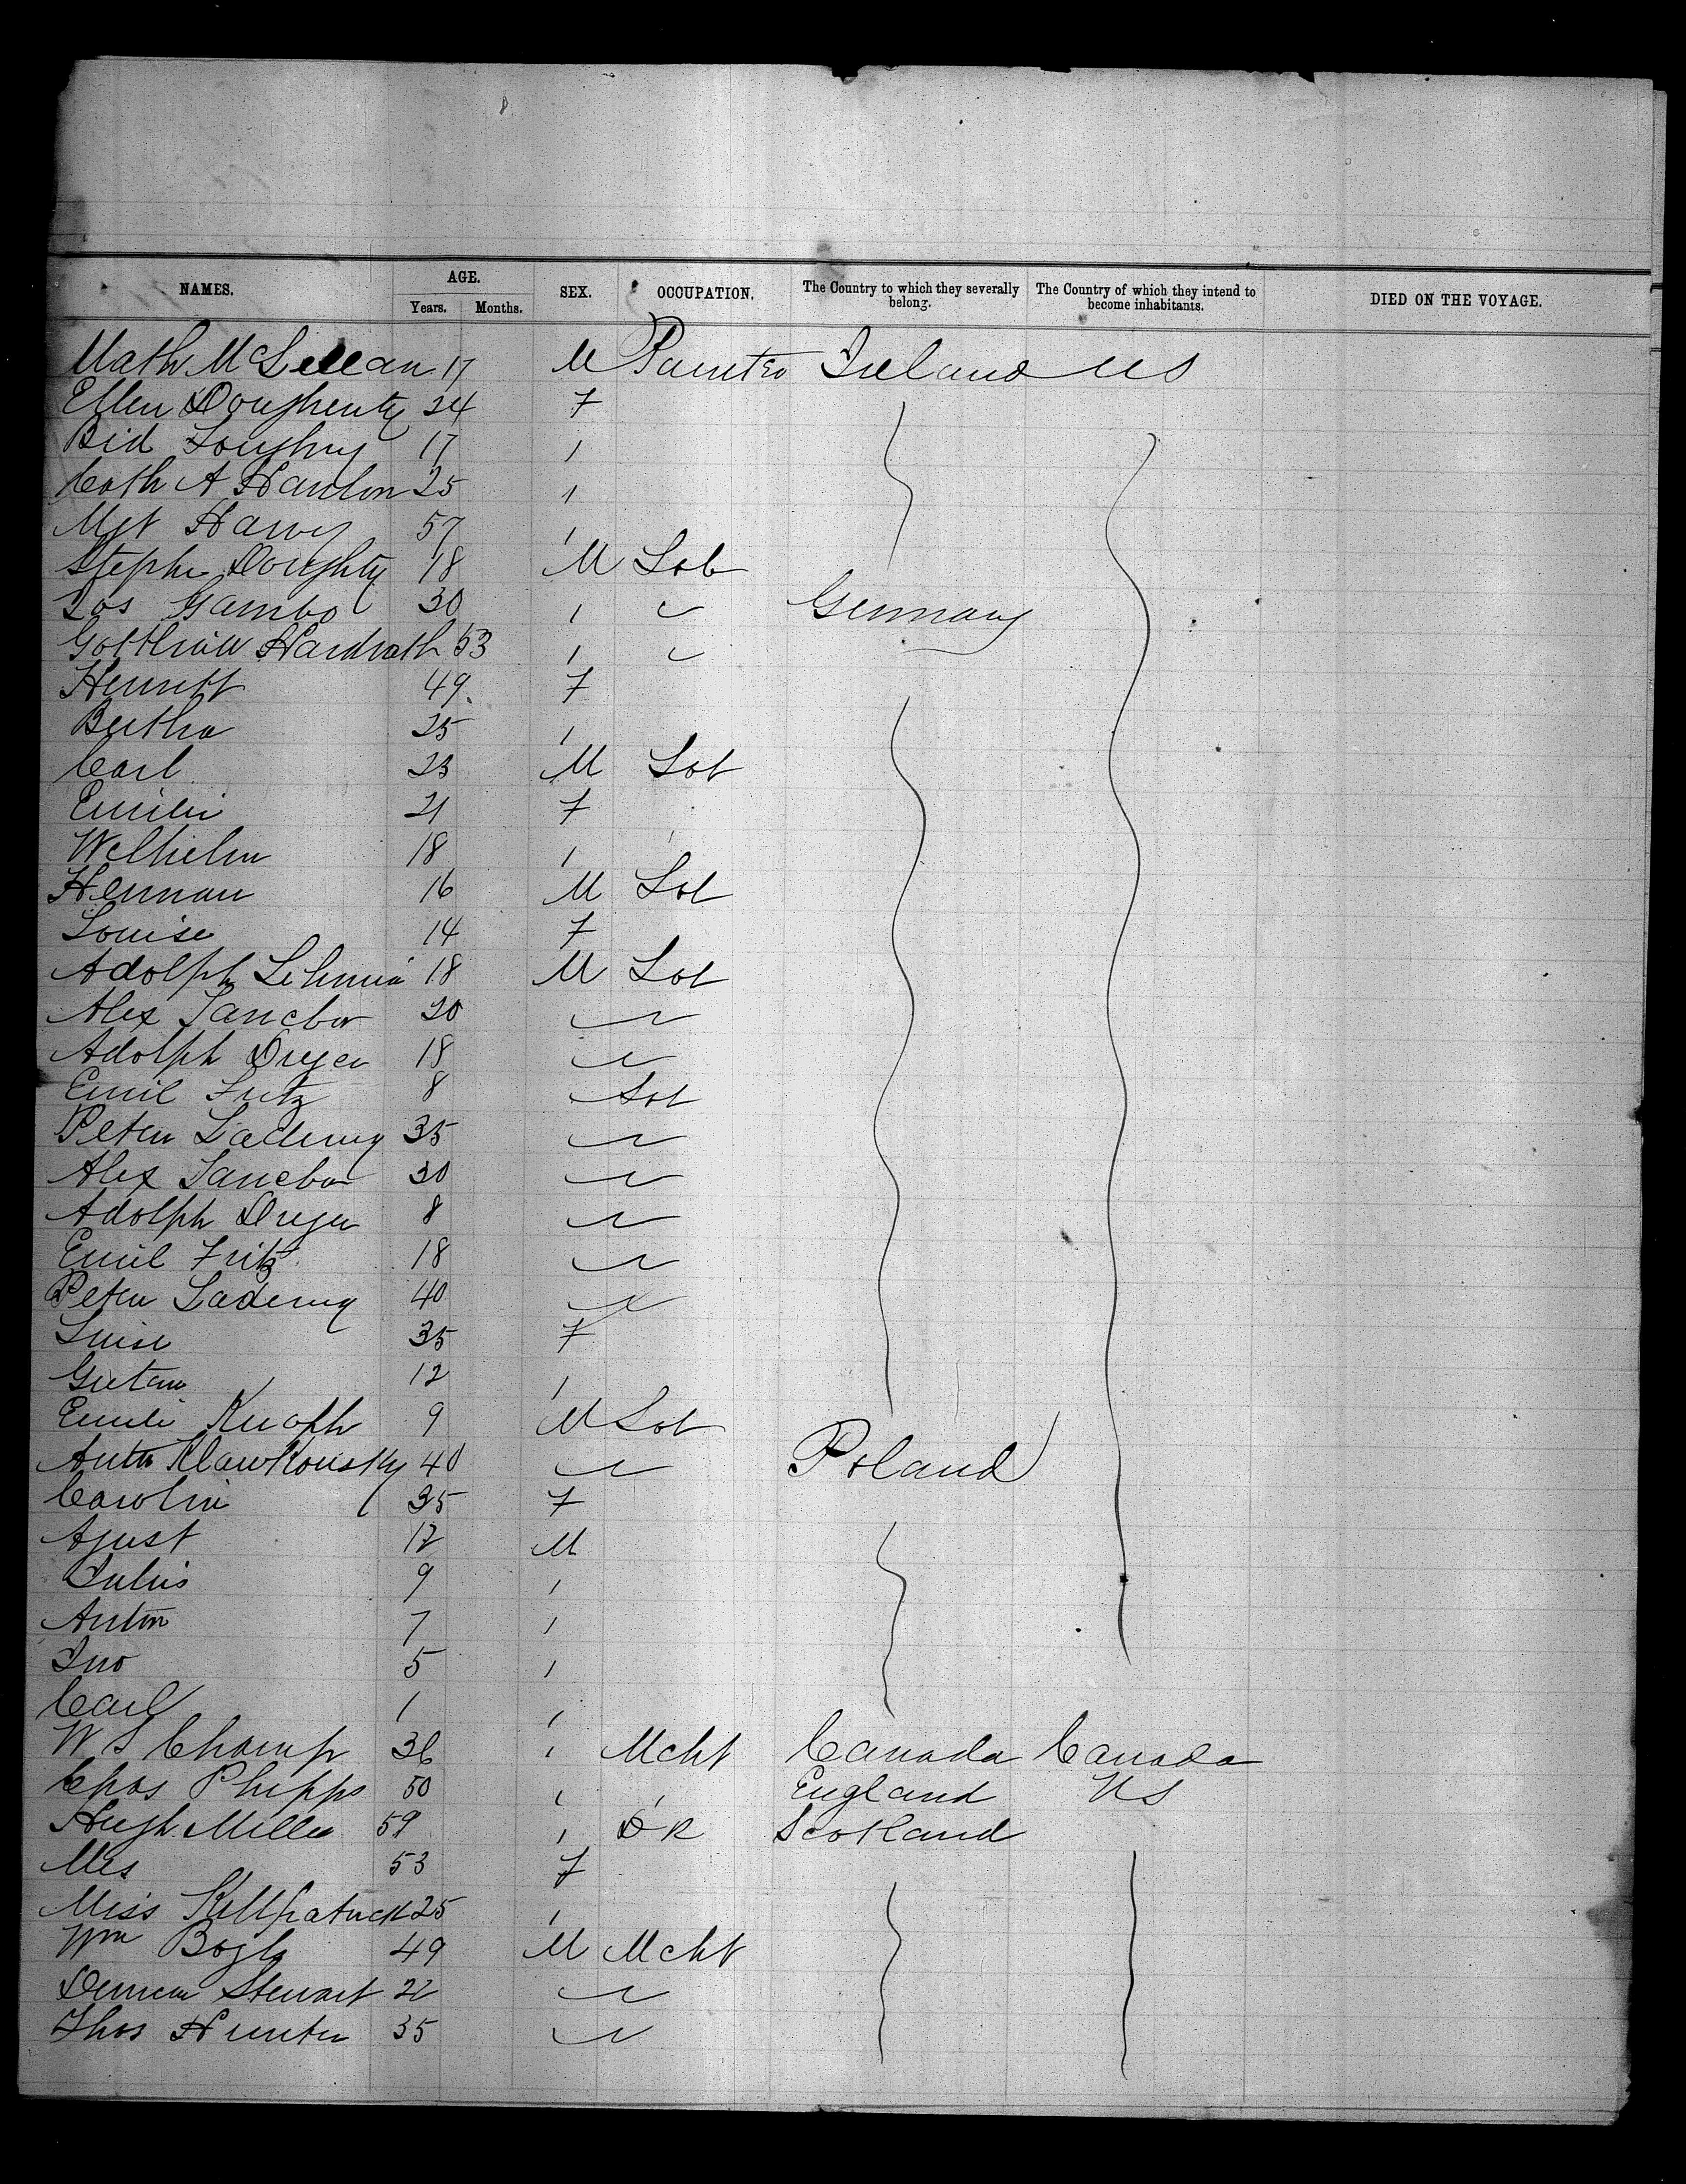 NAMES. AGE. SEX. OCCUPATION. The Country to which they severally belong. The Country of which they intend to become inhabitants. DIED ON THE VOYAGE.
Years. Months.
Math McLellan 17 M Painter Ireland US
Ellen Dougherty 24 F
Bid Loughry 17 "
Cath A Hanlon 25 "
Mgt Harvy 57 "
Stephn Doughty 18 M Lab
Jos Gambo 30 " "  Germany
Gottlieb Hardrath 53 " "
Henrett 49 F
Bertha 25 "
Carl 23 M Lab
Emilie 21 F
Welhelm 18 "
Herman 16 M Lab
Louise 14 F
Adolph 18 M Lab
Alex 30 "
Adolph Dryer 18 "
Emil Fritz 8 Lab
Peter 35 "
Alex 30 "
Adolph Dryer 8 "
Emil Fritz 18 "
Peter 40 "
Luise 35 F
12 "
Emili Knoph 9 M Lab
Klawkousky 40 " Poland
Carolin 35 F
Agust 12 M
Julius 9 "
Anton 7 "
Jno 5 "
Carl 1 "
W S Champ 36 " Mcht Canada Canada
Chas Phipps 50 " " England US
Hugh Miller 59 " DR Scotland
Mrs 53 F
Miss Killpatrick 25 "
Wm Bogle 49 M Mcht
Duncan Stewart 22 "
Thos Hunter 35 "